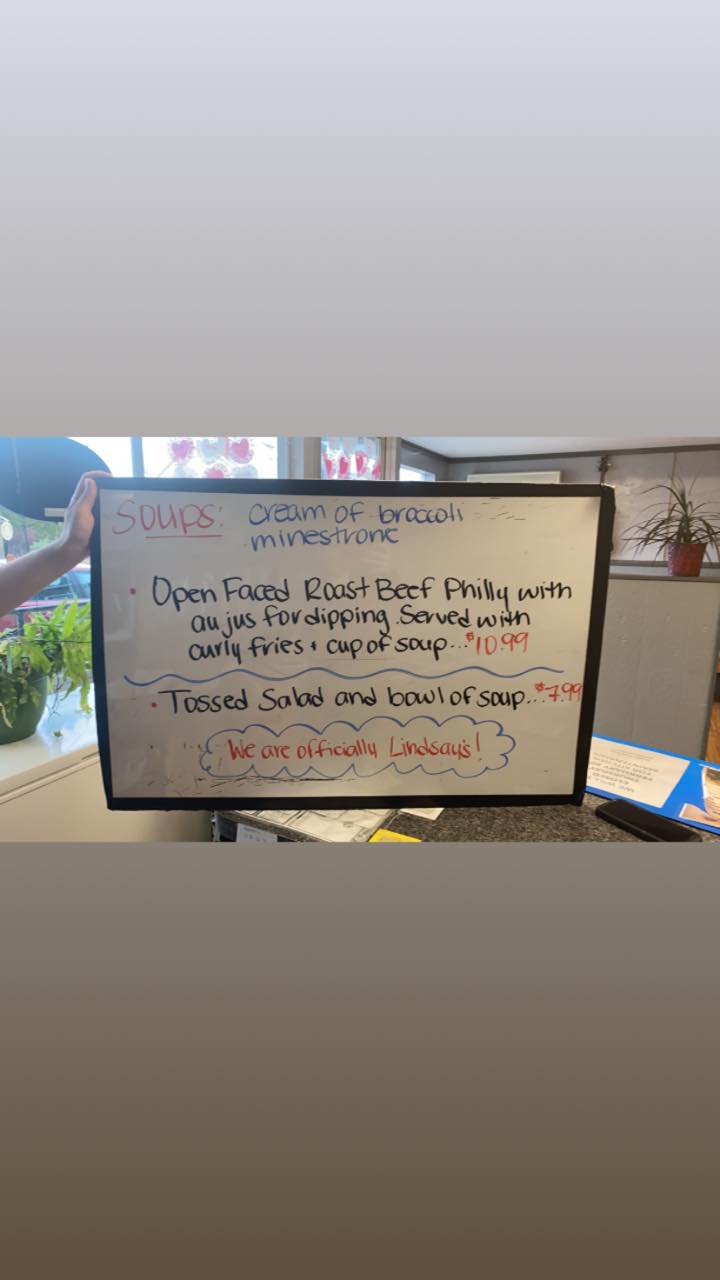 SOUPS: cream of broccoli
minestrone
• Open Faced Roast Beef Philly with
au jus for dipping. Served with
curly fries + cup of soup... $10.99
• Tossed Salad and bowl of soup... $7.99
We are officially Lindsay's!